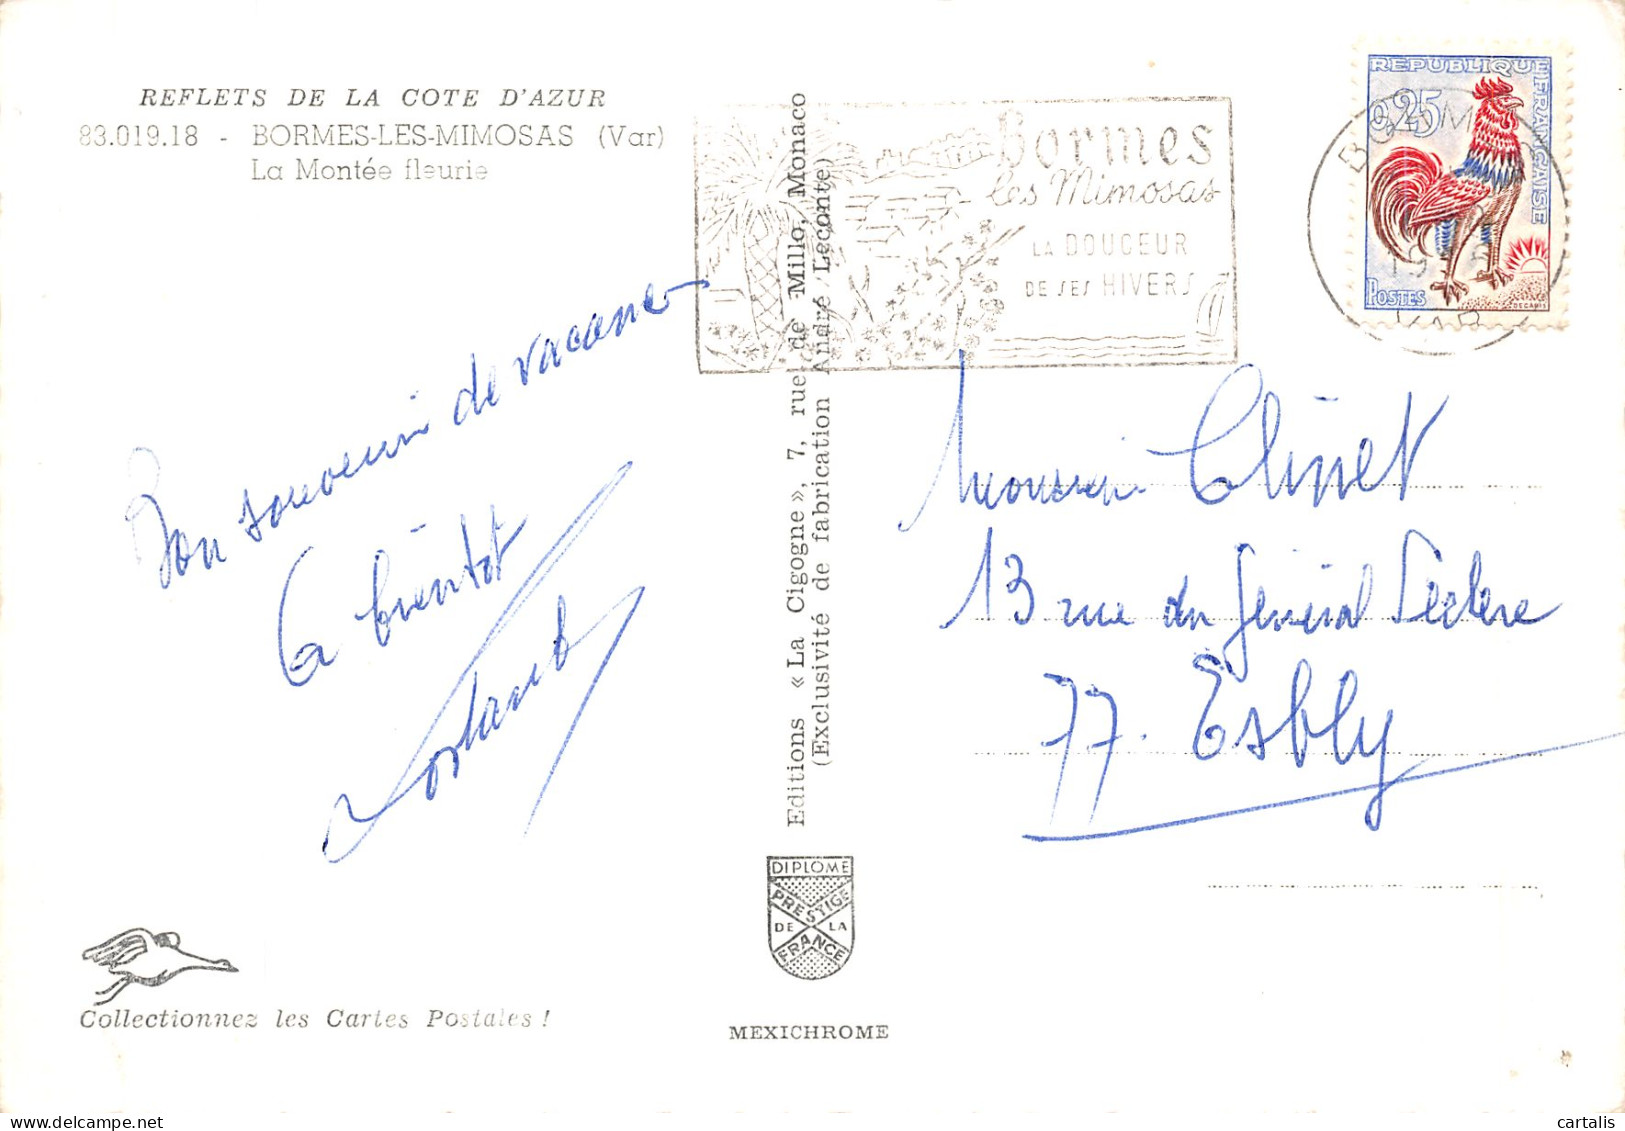 REFLETS DE LA COTE D'AZUR
83.019.18 - BORMES-LES-MIMOSAS (Var)
La Montée fleurie
Bormes
les Mimosas
LA DOUCEUR
DE SES HIVERS
REPUBLIQUE FRANÇAISE
0,25
POSTES
DECARIS
BORMES
VAR
Bon souvenir de vacances
A bientôt
Monsieur Clinet
13 rue du Général Leclerc
77. Esbly
Editions « La Cigogne », 7, rue de Millo, Monaco
(Exclusivité de fabrication André Leconte)
DIPLOME
PRESTIGE
DE LA
FRANCE
MEXICHROME
Collectionnez les Cartes Postales !
cartalis